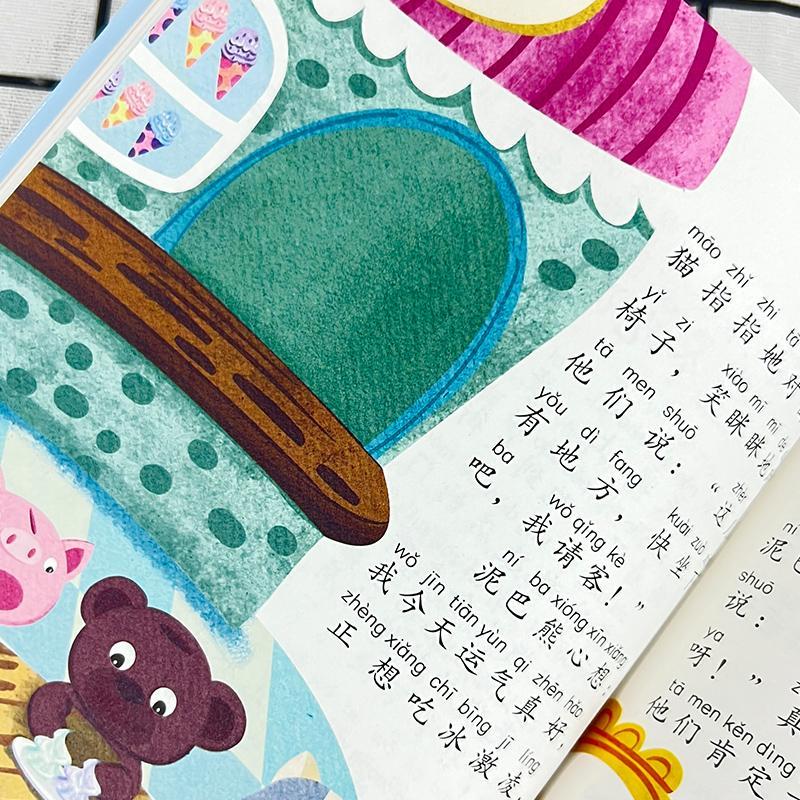 māo zhǐ zhi tā
猫指指她对
yǐ zi xiào mī mī de
椅子，笑眯眯地
tā men shuō zhè
他们说：“这
yǒu dì fang kuài zuò
有地方，快坐
ba wǒ qǐng kè
吧，我请客！”
ní ba xióng xīn xiǎng
泥巴熊心想：
wǒ jīn tiān yùn qi zhēn hǎo
我今天运气真好，
zhèng xiǎng chī bīng jī líng
正想吃冰激凌，
ní
泥巴
shuō
说：
ya
呀！”真
tā men kěn dìng
他们肯定